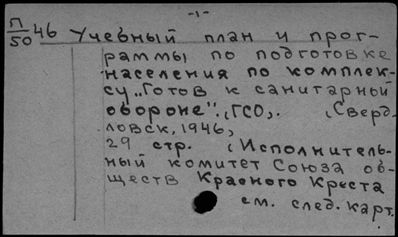 -1-
П
50 46 Учебный план и прог-
раммы по подготовке
населения по комплек-
су „Готов к санитарной
обороне". (ГСО). (Сверд-
ловск, 1946,
29 стр. (Исполнитель-
ный комитет Союза об-
ществ Красного Креста
см. след. карт.